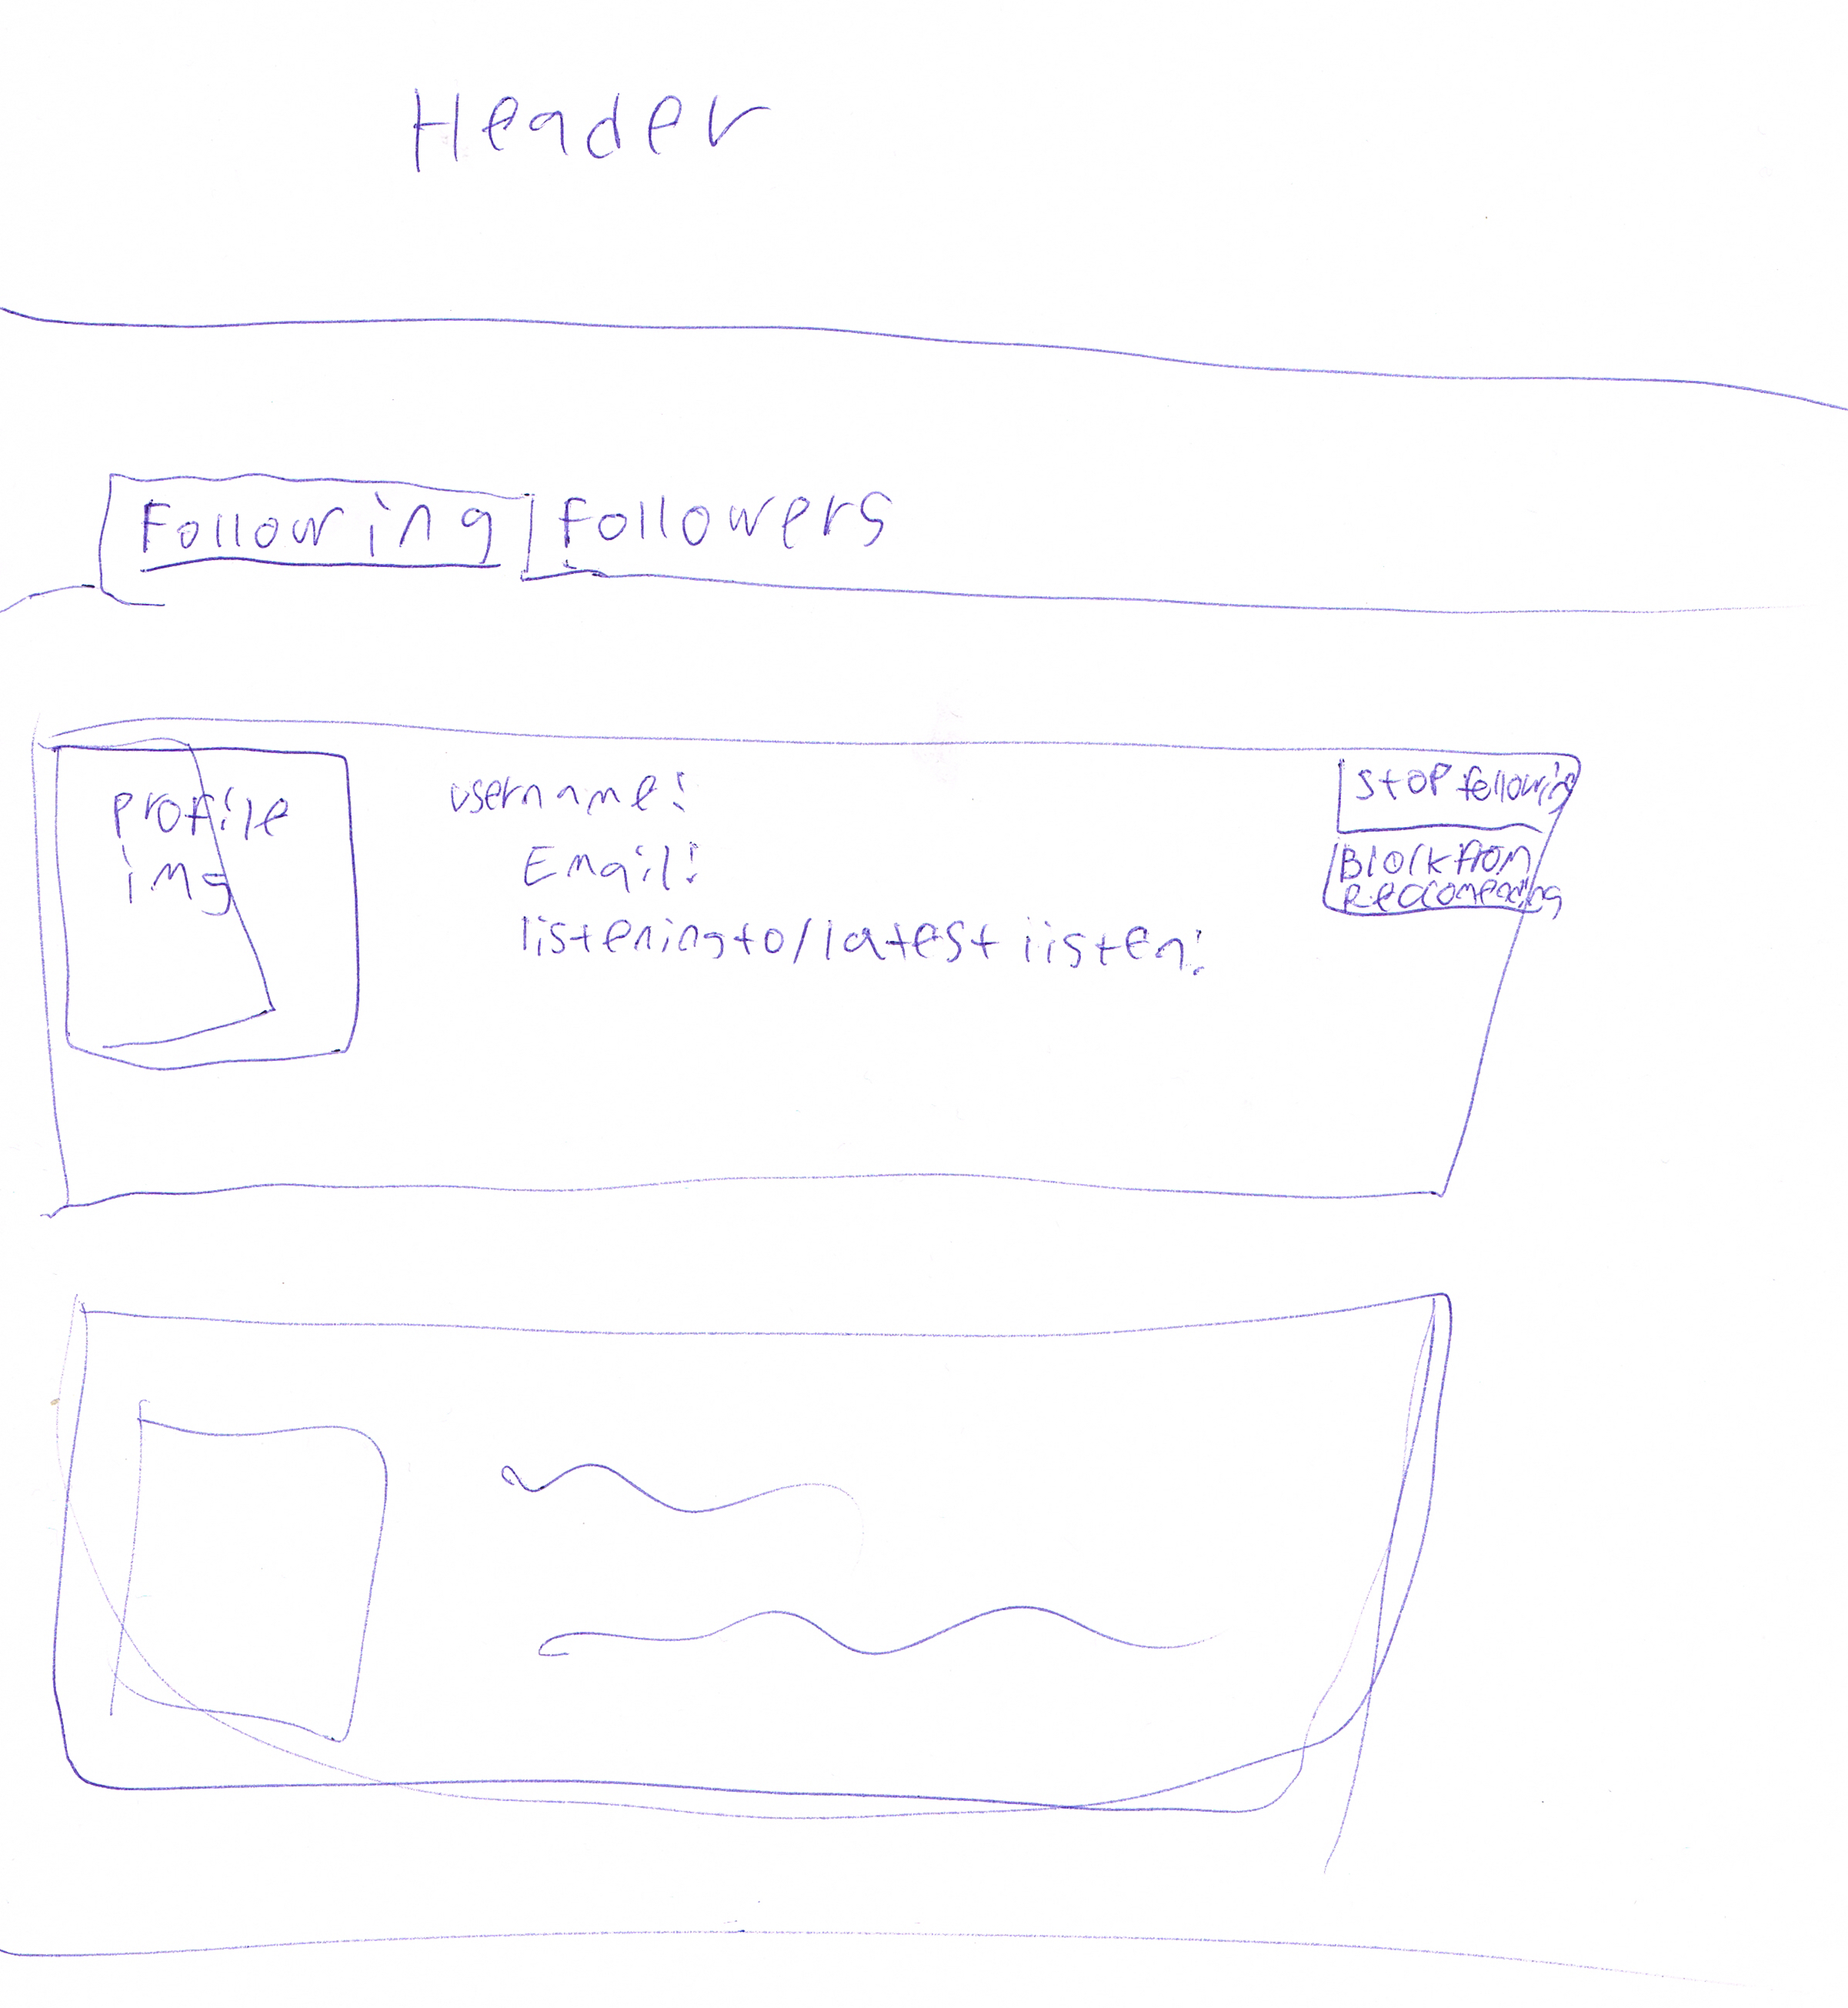 Header
Following Followers
profile
img
username:
Email:
listening to/latest listen:
Stop following
Block from
Reccomending